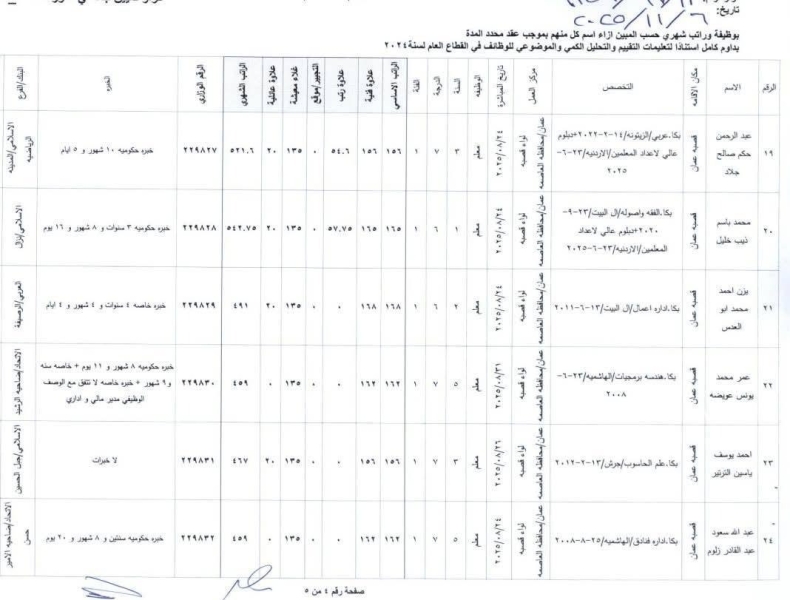 تاريخ: ٢٠٢٥/١١/٦
بوظيفة وراتب شهري حسب المبين ازاء اسم كل منهم بموجب عقد محدد المدة
بدوام كامل استنادًا لتعليمات التقييم والتحليل الكمي والموضوعي للوظائف في القطاع العام لسنة ٢٠٢٤
الرقم الاسم مكان الاقامه التخصص مركز العمل تاريخ المباشرة الوظيفه السنة الدرجة الفئة الراتب الاساسي علاوة فنية علاوة رتب التجيير/موقع غلاء معيشة علاوة عائلية الراتب الشهري الرقم الوزاري الخبره البنك/الفرع
١٩ عبد الرحمن حكم صالح جلاد قصبه عمان بكا.عربي/الزيتونه/١٤-٢-٢٠٢٢+دبلوم عالي لاعداد المعلمين/الاردنيه/٢٣-٦-٢٠٢٥ عمان/محافظه العاصمه لواء قصبه ٢٠٢٥/٠٨/٢٤ معلم ٣ ٧ ١ ١٥٦ ١٥٦ ٥٤.٦ ٠ ١٣٥ ٢٠ ٥٢١.٦ ٢٢٩٨٢٧ خبره حكوميه ١٠ شهور و ٥ ايام الاسلامي/المدينه الرياضيه
٢٠ محمد باسم ذيب خليل قصبه عمان بكا.الفقه واصوله/ال البيت/٢٣-٩-٢٠٢٠+دبلوم عالي لاعداد المعلمين/الاردنيه/٢٣-٦-٢٠٢٥ عمان/محافظه العاصمه لواء قصبه ٢٠٢٥/٠٨/٢٤ معلم ١ ٦ ١ ١٦٥ ١٦٥ ٥٧.٧٥ ٠ ١٣٥ ٢٠ ٥٤٢.٧٥ ٢٢٩٨٢٨ خبره حكوميه ٣ سنوات و ٨ شهور و ١٦ يوم الاسلامي/نزال
٢١ يزن احمد محمد ابو العدس قصبه عمان بكا.اداره اعمال/ال البيت/١٣-٦-٢٠١١ عمان/محافظه العاصمه لواء قصبه ٢٠٢٥/٠٨/٢٤ معلم ٢ ٦ ١ ١٦٨ ١٦٨ ٠ ٠ ١٣٥ ٢٠ ٤٩١ ٢٢٩٨٢٩ خبره خاصه ٤ سنوات و ٤ شهور و ٤ ايام العربي/الرصيفة
٢٢ عمر محمد يونس عويضه قصبه عمان بكا.هندسه برمجيات/الهاشميه/٢٣-٦-٢٠٠٨ عمان/محافظه العاصمه لواء قصبه ٢٠٢٥/٠٨/٣١ معلم ٥ ٧ ١ ١٦٢ ١٦٢ ٠ ٠ ١٣٥ ٠ ٤٥٩ ٢٢٩٨٣٠ خبره حكوميه ٨ شهور و ١١ يوم + خاصه سنه و٩ شهور + خبره خاصه لا تتفق مع الوصف الوظيفي مدير مالي و اداري الاتحاد/ضاحيه الرشيد
٢٣ احمد يوسف ياسين الترتير قصبه عمان بكا.علم الحاسوب/جرش/١٣-٢-٢٠١٢ عمان/محافظه العاصمه لواء قصبه ٢٠٢٥/٠٨/٢٦ معلم ٣ ٧ ١ ١٥٦ ١٥٦ ٠ ٠ ١٣٥ ٢٠ ٤٦٧ ٢٢٩٨٣١ لا خبرات الاسلامي/جبل الحسين
٢٤ عبد الله سعود عبد القادر زلوم قصبه عمان بكا.اداره فنادق/الهاشميه/٢٥-٨-٢٠٠٨ عمان/محافظه العاصمه لواء قصبه ٢٠٢٥/٠٨/٢٤ معلم ٥ ٧ ١ ١٦٢ ١٦٢ ٠ ٠ ١٣٥ ٠ ٤٥٩ ٢٢٩٨٣٢ خبره حكوميه سنتين و ٨ شهور و ٢٠ يوم الاتحاد/ضاحيه الامير حسن
صفحة رقم ٤ من ٥